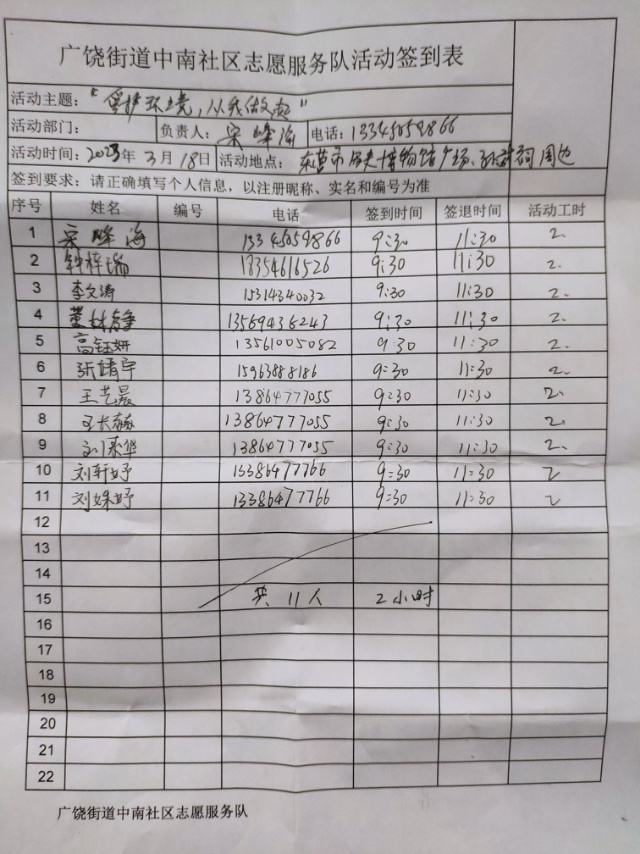 广饶街道中南社区志愿服务队活动签到表
活动主题：“保护环境，从我做起”
活动部门： 负责人：宋峰海 电话：13345059866
活动时间：2023年3月18日 活动地点：东营市历史博物馆广场、孙武祠周边
签到要求：请正确填写个人信息，以注册昵称、实名和编号为准
序号 姓名 编号 电话 签到时间 签退时间 活动工时
1 宋峰海 13345059866 9:30 11:30 2.
2 钟梓瑞 18354616526 9:30 11:30 2.
3 李文涛 15314340032 9:30 11:30 2.
4 董林静 13569436243 9:30 11:30 2.
5 高钰妍 13561005082 9:30 11:30 2.
6 张靖宇 15963888186 9:30 11:30 2.
7 王艺晨 13864777055 9:30 11:30 2.
8 王长赫 13864777055 9:30 11:30 2.
9 刘素华 13864777055 9:30 11:30 2.
10 刘轩妤 13386477766 9:30 11:30 2
11 刘姝妤 13386477766 9:30 11:30 2
12
13
14
15 共11人 2小时
16
17
18
19
20
21
22
广饶街道中南社区志愿服务队